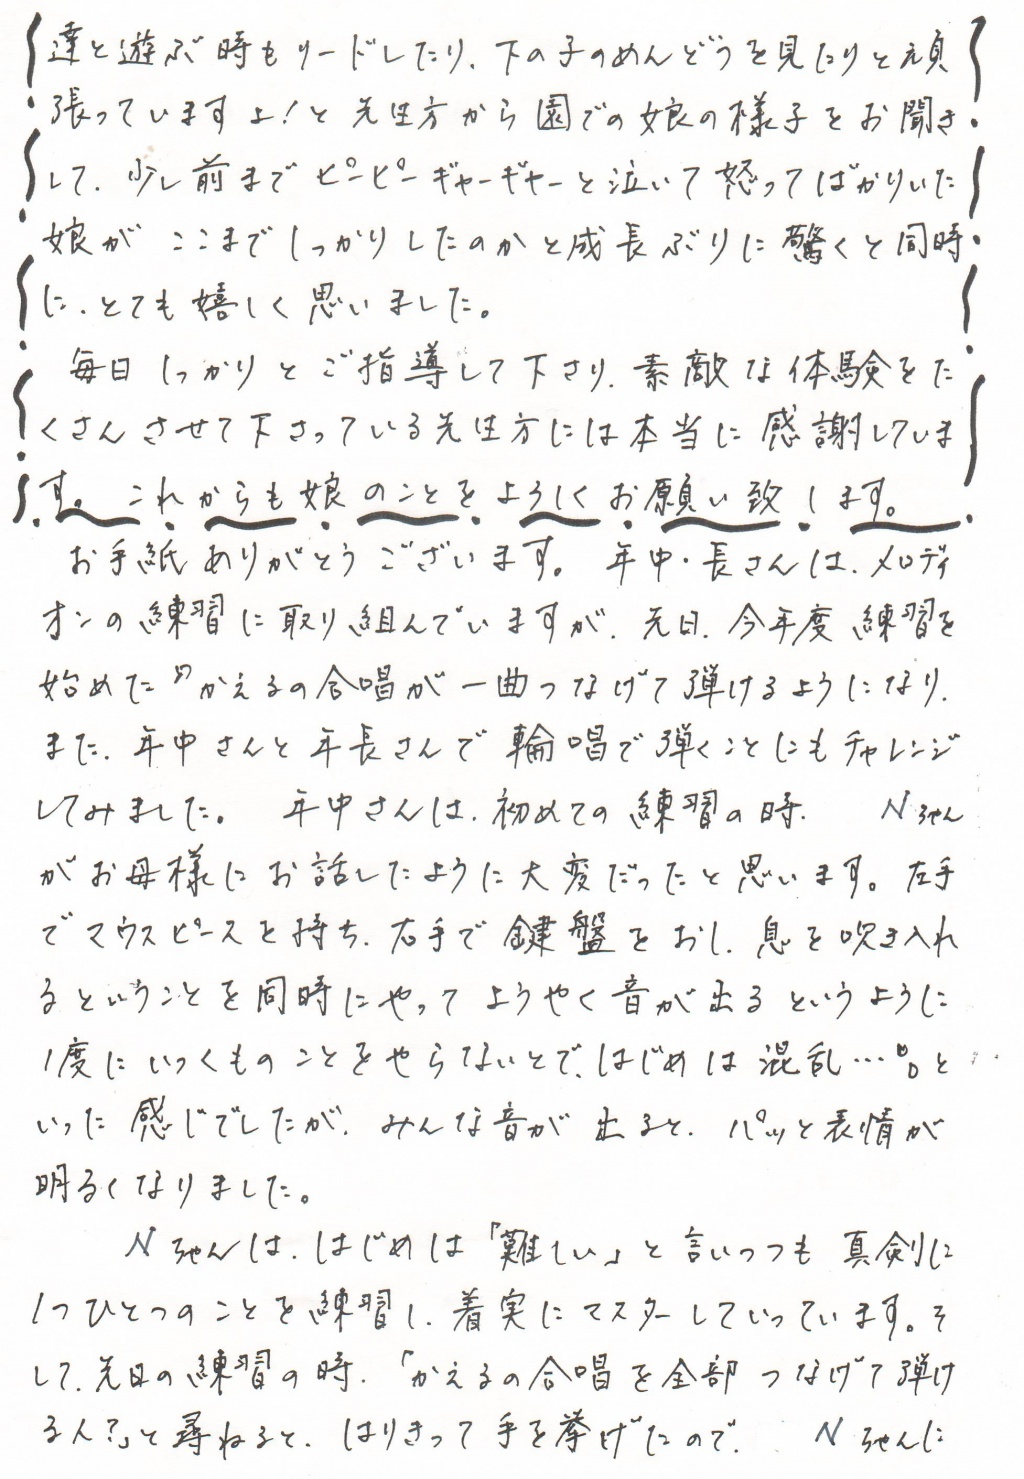 達と遊ぶ時もリードしたり、下の子のめんどうを見たりと頑
張っていますよ!と先生方から園での娘の様子をお聞き
して、少し前までピーピーギャーギャーと泣いて怒ってばかりいた
娘がここまでしっかりしたのかと成長ぶりに驚くと同時
に、とても嬉しく思いました。
毎日しっかりとご指導して下さり、素敵な体験をた
くさんさせて下さっている先生方には本当に感謝していま
す。これからも娘のことをよろしくお願い致します。
お手紙ありがとうございます。年中・長さんは、メロディ
オンの練習に取り組んでいますが、先日、今年度練習を
始めた〃かえるの合唱が一曲つなげて弾けるようになり、
また、年中さんと年長さんで輪唱で弾くことにもチャレンジ
してみました。年中さんは、初めての練習の時、Nちゃん
がお母様にお話したように大変だったと思います。左手
でマウスピースを持ち、右手で鍵盤をおし、息を吹き入れ
るということを同時にやってようやく音が出るというように
1度にいくつものことをやらないとで、はじめは混乱…。と
いった感じでしたが、みんな音が出ると、パッと表情が
明るくなりました。
Nちゃんは、はじめは「難しい」と言いつつも真剣に
1つひとつのことを練習し、着実にマスターしていっています。そ
して、先日の練習の時、「かえるの合唱を全部つなげて弾け
る人?」と尋ねると、はりきって手を挙げたので、Nちゃんに